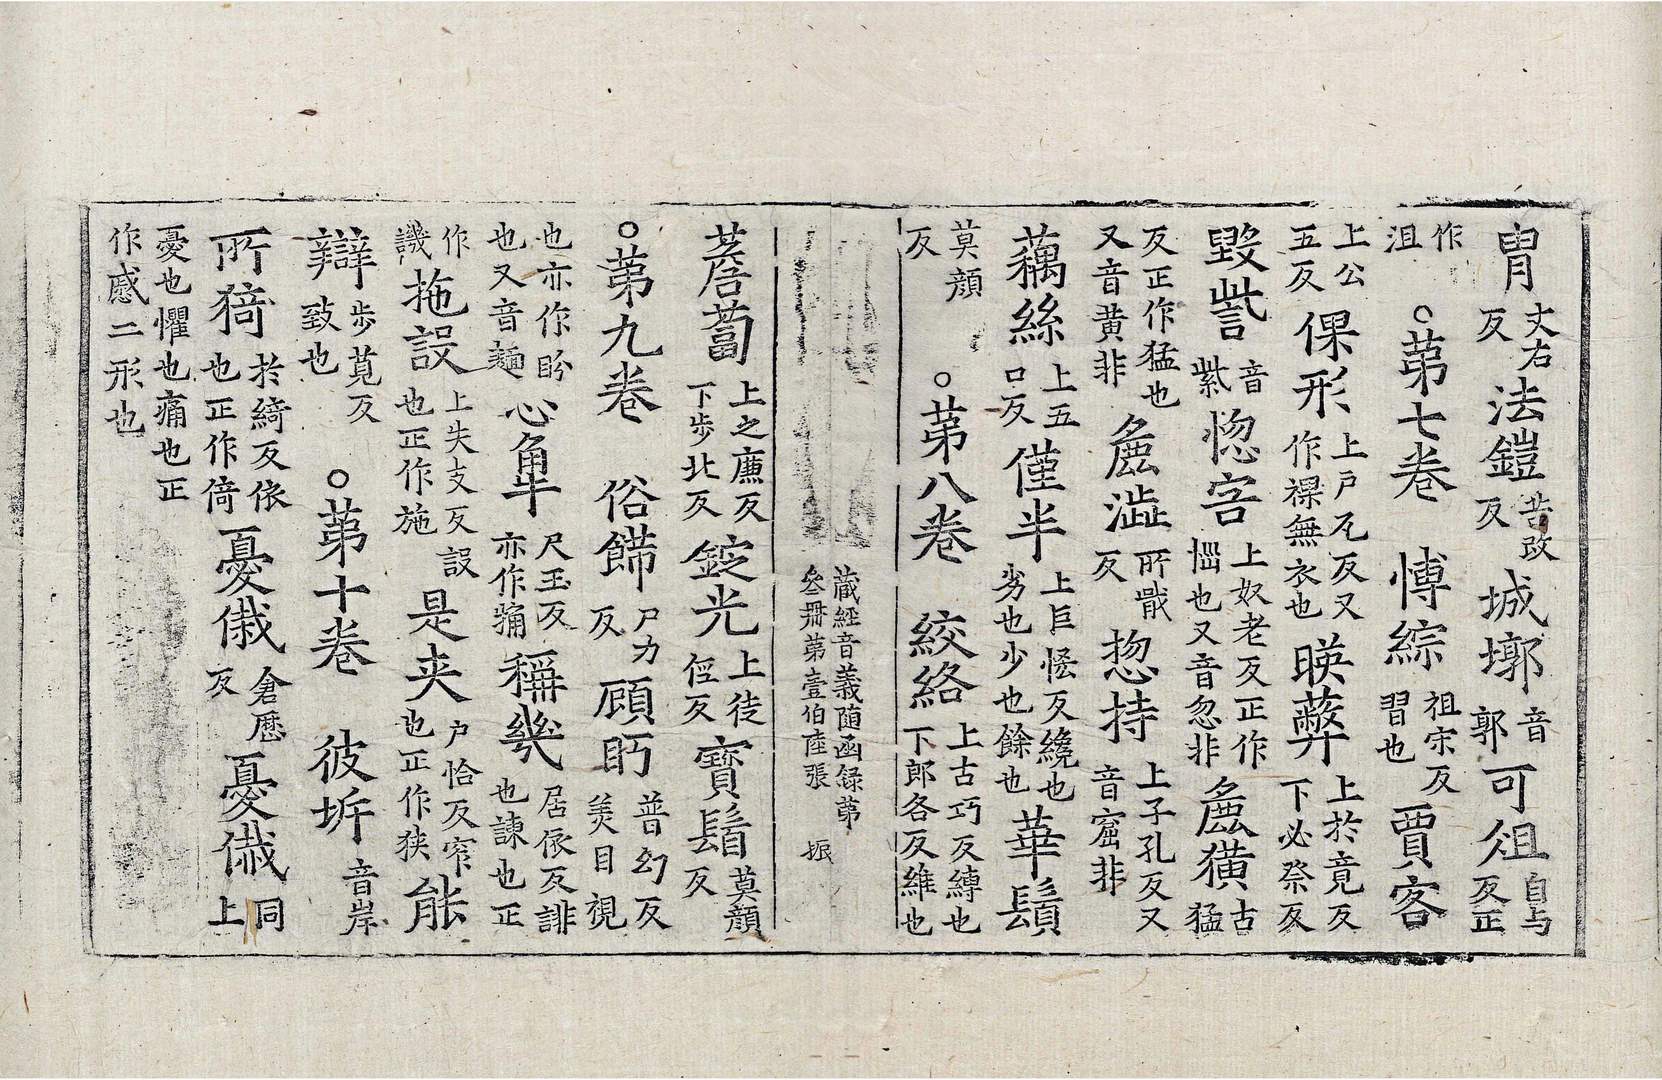 冑丈右反法鎧苦改反城墎音郭可俎自与反正
作沮○苐七卷 愽綜祖宋反習也賈客
上公五反倮形上戶瓦反又作裸無衣也暎蔽上於竟反下必祭反
毀訾音紫惚害上奴老反正作惱也又音忽非麁獷古猛
反正作猛也又音黄非麁澁所戢反揔持上子孔反又音窟非
藕絲上五口反僅半上巨恡反纔也劣也少也餘也華鬚
莫顔反○苐八卷 絞絡上古巧反縛也下郎各反維也
藏經音義随函録苐
叄冊苐壹伯陸張 振
薝蔔上之廉反下步北反錠光上徒徑反寶鬚莫顔反
○苐九卷 俗餙尸力反顧眄普幻反美目視
也亦作盼也又音麵心尺玉反亦作觸稱㡬居依反誹也諫也正
作譏拖設上失支反設也正作施是夾戶恰反窄也正作狭能
辯步莧反致也○苐十卷 彼坼音岸
所猗於綺反依也正作倚憂倉歷反憂上同
憂也懼也痛也正作慼二形也